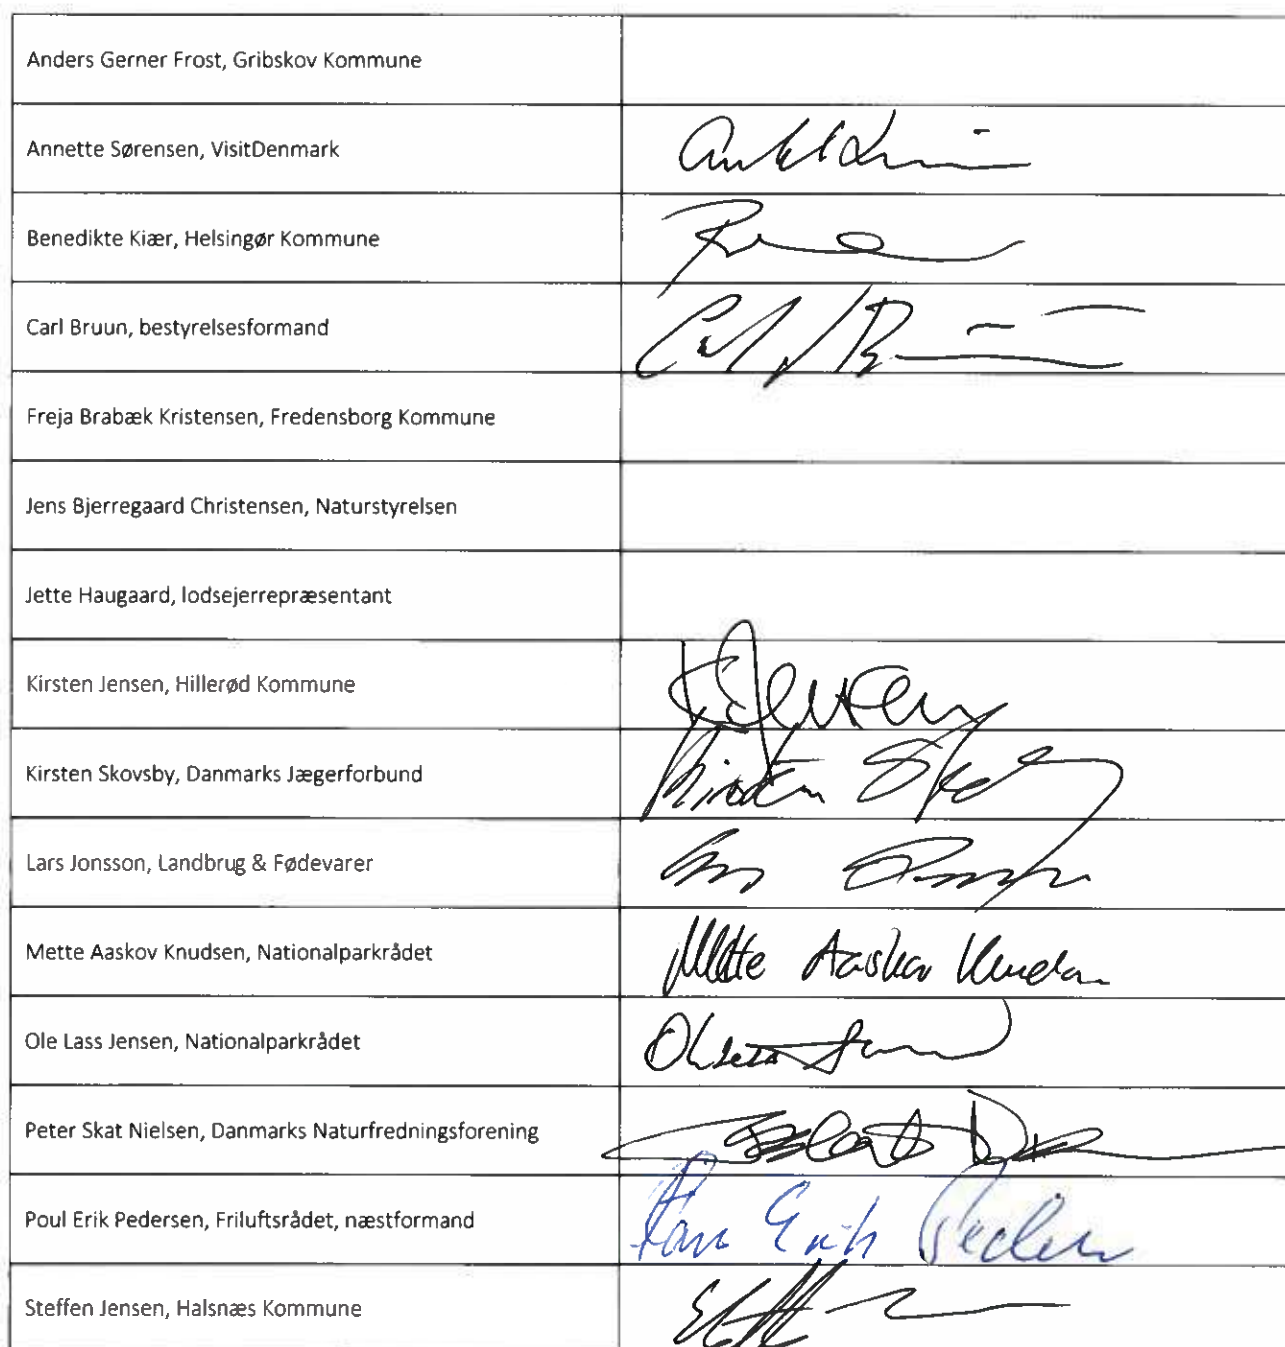 Anders Gerner Frost, Gribskov Kommune
Annette Sørensen, VisitDenmark
Benedikte Kiær, Helsingør Kommune
Carl Bruun, bestyrelsesformand
Freja Brabæk Kristensen, Fredensborg Kommune
Jens Bjerregaard Christensen, Naturstyrelsen
Jette Haugaard, lodsejerrepræsentant
Kirsten Jensen, Hillerød Kommune
Kirsten Skovsby, Danmarks Jægerforbund
Lars Jonsson, Landbrug & Fødevarer
Mette Aaskov Knudsen, Nationalparkrådet Mette Aaskov Knudsen
Ole Lass Jensen, Nationalparkrådet
Peter Skat Nielsen, Danmarks Naturfredningsforening
Poul Erik Pedersen, Friluftsrådet, næstformand Poul Erik Pedersen
Steffen Jensen, Halsnæs Kommune